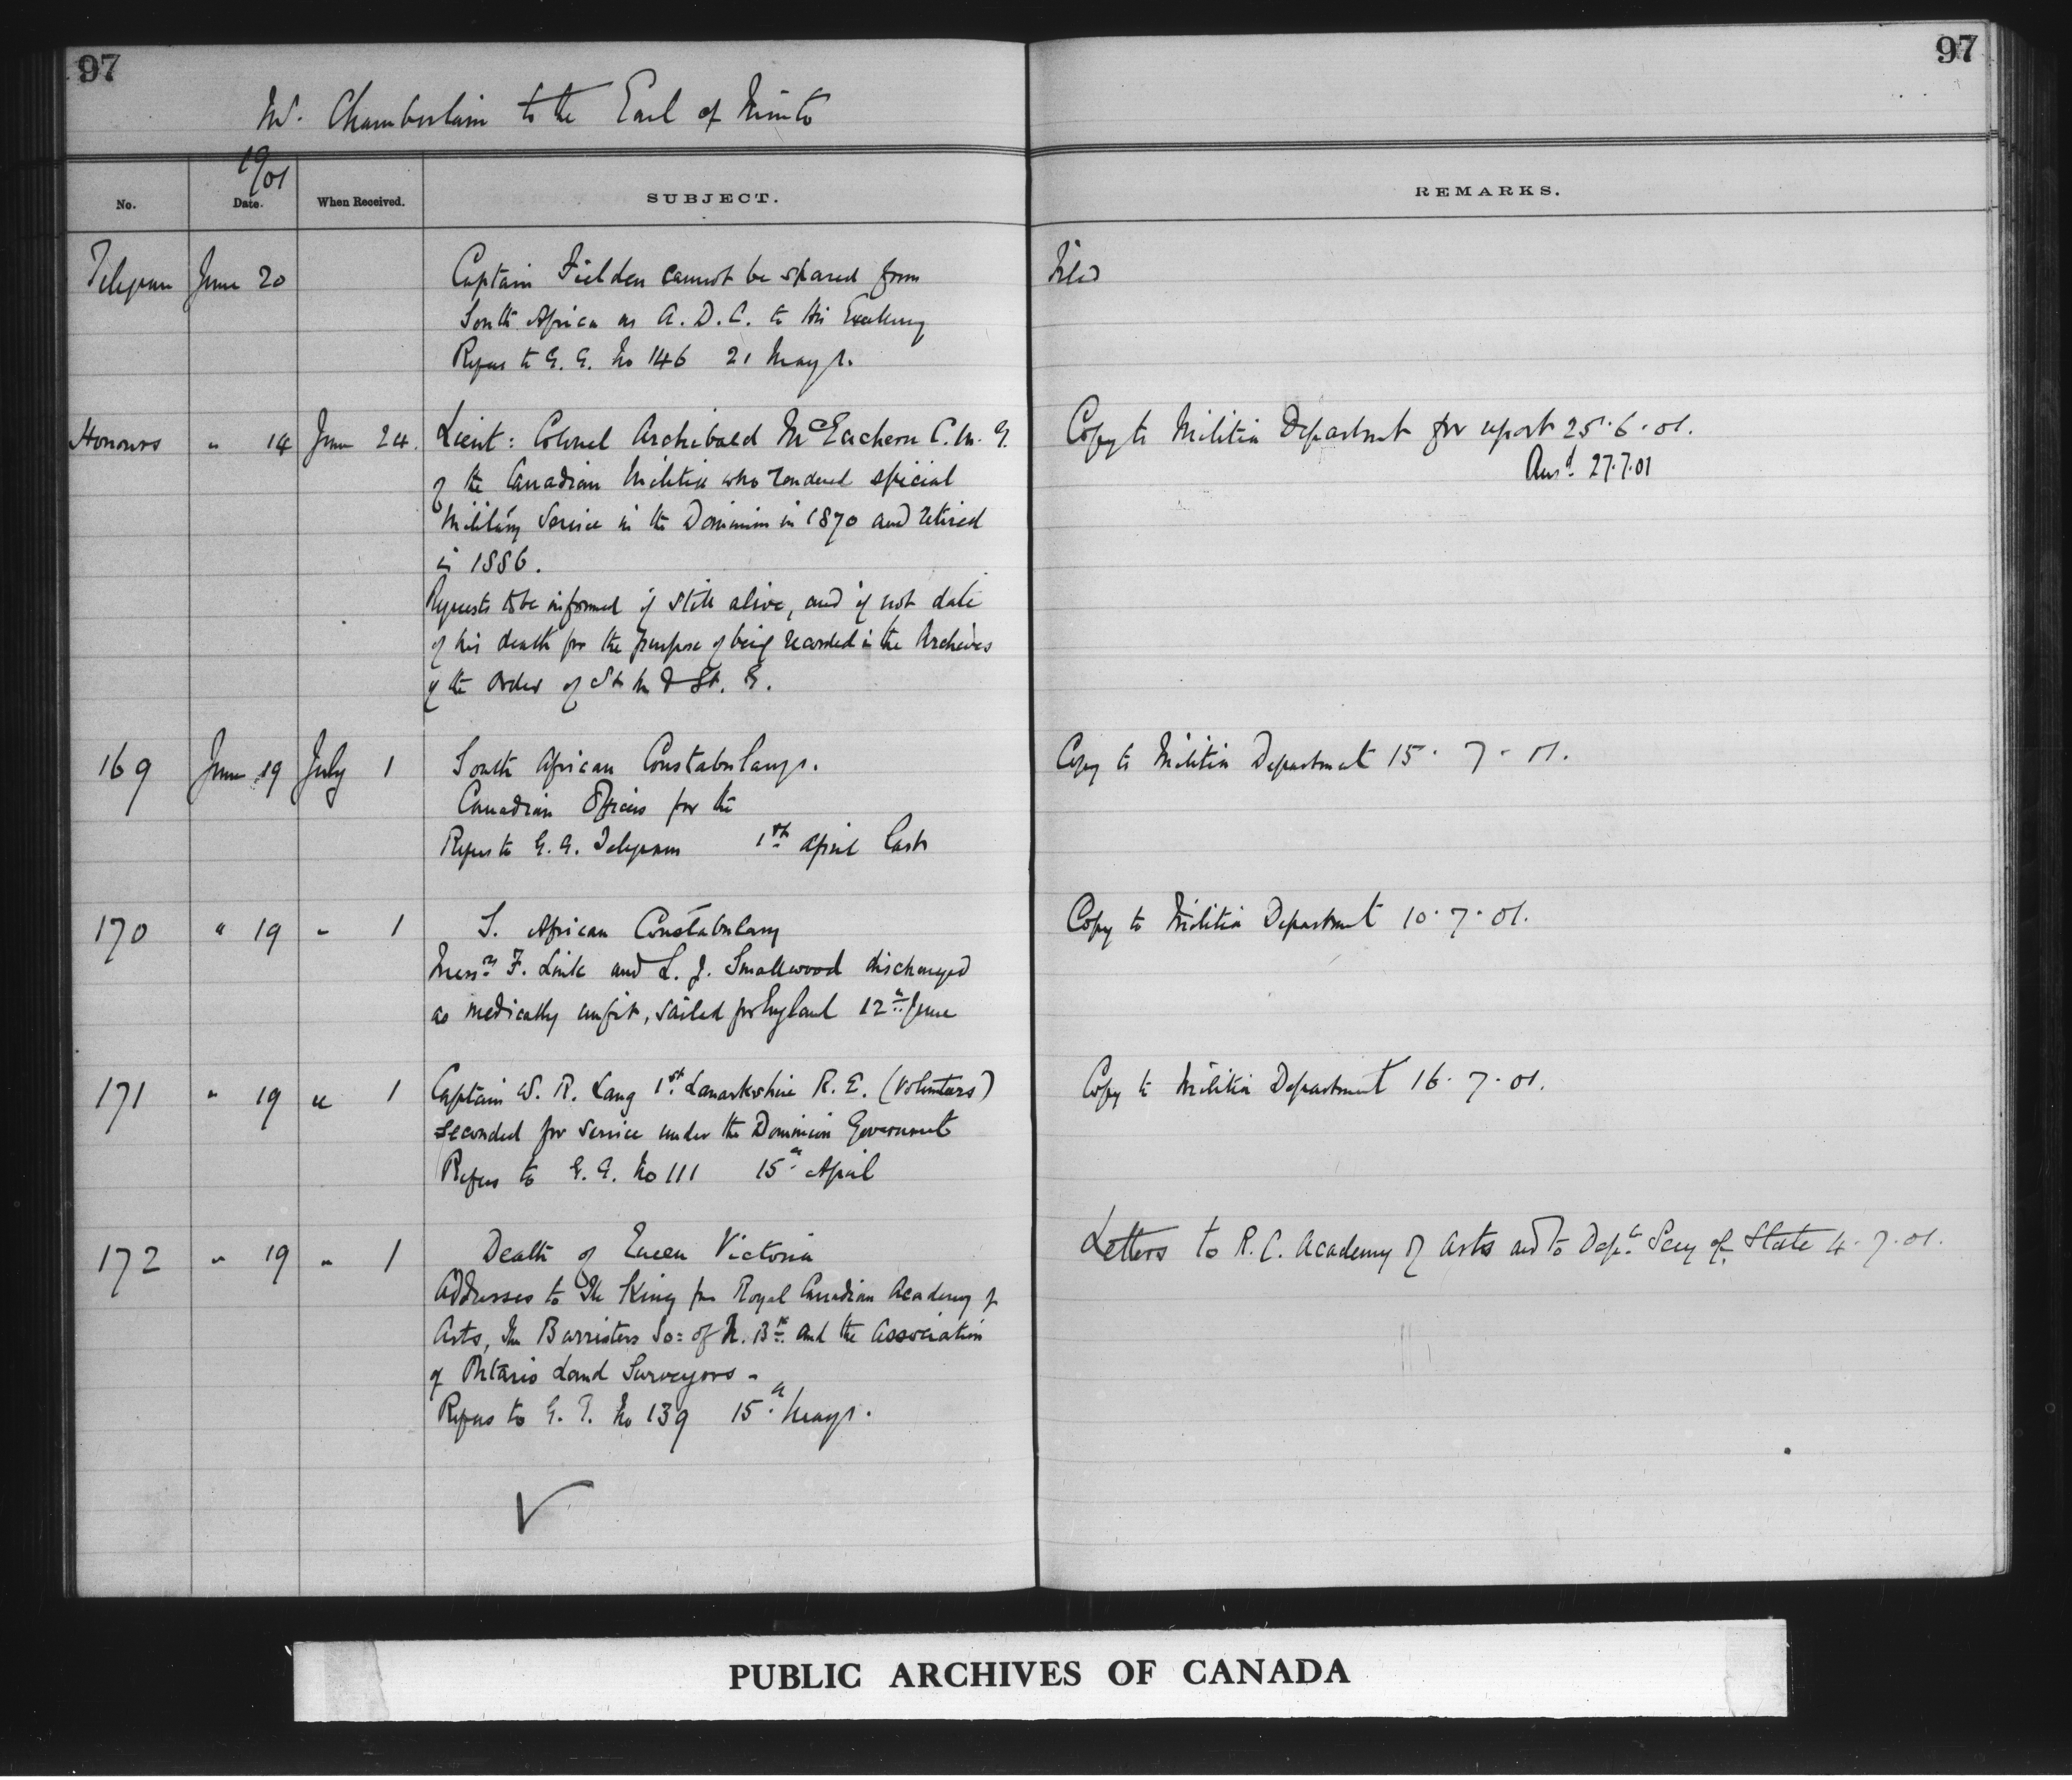 97
97
Mr. Chamberlain to the Earl of Minto
1901
No.
Date.
When Received.
SUBJECT.
REMARKS.
Telegram June 20 Captain Fielden cannot be spared from Filed
South Africa as A.D.C. to His Excellency
Refers to G. G. No 146 21 May.
Honours " 14 June 24. Lieut: Colonel Archibald McEachern C.M.G. Copy to Militia Department for report 25.6.01.
of the Canadian Militia who rendered special Ansd. 27.7.01
Military Service in the Dominion in 1870 and retired
in 1886.
Requests to be informed if still alive, and if not date
of his death for the purpose of being recorded in the Archives
of the Order of St M & St. G.
169 June 19 July 1 South African Constabulary. Copy to Militia Department 15. 7. 01.
Canadian Officers for the
Refers to G. G. Telegram 1st April last
170 " 19 " 1 S. African Constabulary Copy to Militia Department 10.7.01.
Messrs F. Link and L. J. Smallwood discharged
as medically unfit, sailed for England 12th June
171 " 19 " 1 Captain W. R. Lang 1st Lanarkshire R. E. (Volunteers) Copy to Militia Department 16.7.01.
seconded for service under the Dominion Government
Refers to G. G. No 111 15th April
172 " 19 " 1 Death of Queen Victoria Letters to R. C. Academy of Arts and to Dept Secy of State 4.7.01.
Addresses to The King from Royal Canadian Academy of
Arts, the Barristers So: of N. Bk. and the Association
of Ontario Land Surveyors -
Refers to G. G. No 139 15th May.
PUBLIC ARCHIVES OF CANADA